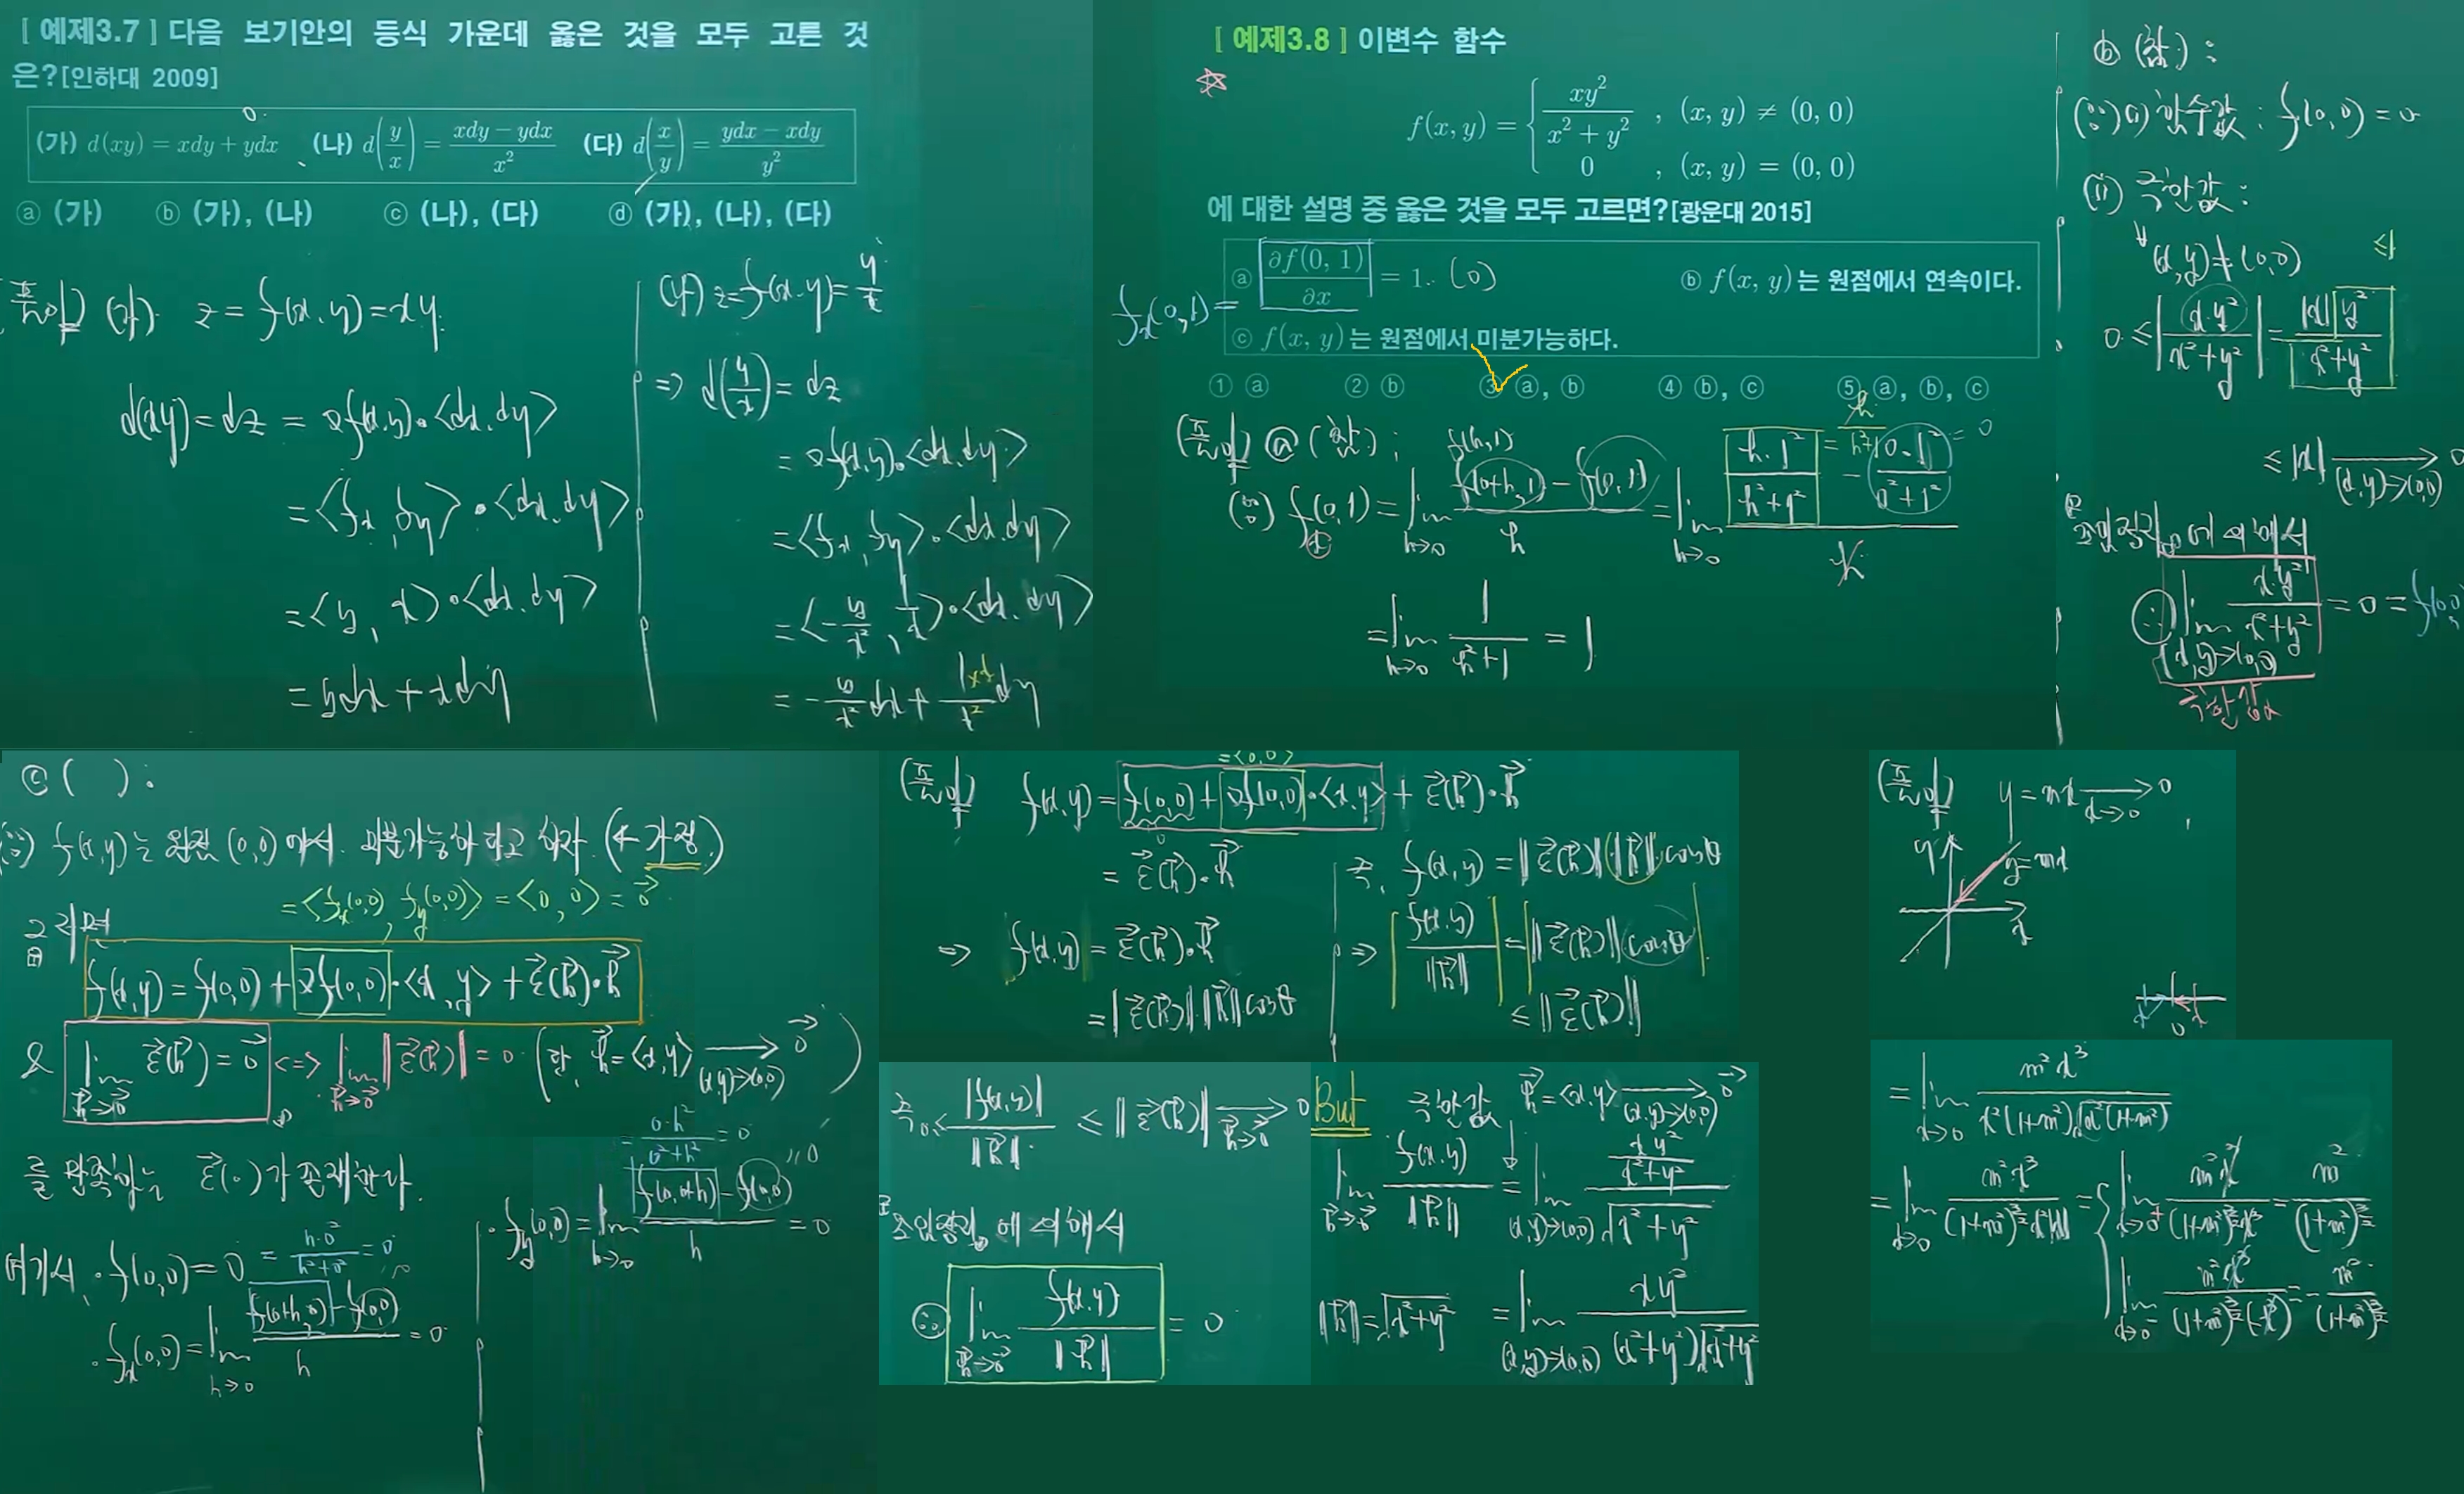 [ 예제3.7 ] 다음 보기안의 등식 가운데 옳은 것을 모두 고른 것
은?[인하대 2009]
(가) d(xy) = xdy + ydx (나) d(y/x) = (xdy − ydx)/x² (다) d(x/y) = (ydx − xdy)/y²
ⓐ (가) ⓑ (가), (나) ⓒ (나), (다) ⓓ (가), (나), (다)
(풀이) (가) z = f(x, y) = xy
d(xy) = dz = ∇f(x, y)·<dx, dy>
= <fx, fy>·<dx, dy>
= <y, x>·<dx, dy>
= ydx + xdy
(나) z = f(x, y) = y/x
⇒ d(y/x) = dz
= ∇f(x, y)·<dx, dy>
= <fx, fy>·<dx, dy>
= <−y/x², 1/x>·<dx, dy>
= −y/x² dx + 1×x/x² dy
[ 예제3.8 ] 이변수 함수
f(x, y) = { xy²/(x² + y²) , (x, y) ≠ (0, 0)
0 , (x, y) = (0, 0)
에 대한 설명 중 옳은 것을 모두 고르면?[광운대 2015]
fx(0, 1) = ⓐ ∂f(0, 1)/∂x = 1. (0) ⓑ f(x, y)는 원점에서 연속이다.
ⓒ f(x, y)는 원점에서 미분가능하다.
① ⓐ ② ⓑ ③ ⓐ, ⓑ ④ ⓑ, ⓒ ⑤ ⓐ, ⓑ, ⓒ
(풀이) ⓐ (참) ; f(h, 1) h/(h²+1)
(∵) fx(0, 1) = lim h→0 (f(0+h, 1) − f(0, 1))/h = lim h→0 (h·1²/(h²+1²) − 0·1²/(0²+1²))/h = 0
= lim h→0 1/(h²+1) = 1
ⓑ (참) :
(∵) (i) 함수값 : f(0, 0) = 0
(ii) 극한값 :
∀(x, y) ≠ (0, 0) ≤1
0 ≤ |x·y²/(x²+y²)| = |x|y²/(x²+y²)
≤ |x| → 0 (x, y)→(0, 0)
조임정리에 의해서
∴ lim (x, y)→(0, 0) x·y²/(x²+y²) = 0 = f(0, 0)
극한값
ⓒ ( ) :
(∵) f(x, y)는 원점 (0, 0)에서 미분가능하다고 하자. (← 가정)
= <fx(0, 0), fy(0, 0)> = <0, 0> = 0⃗
그러면
f(x, y) = f(0, 0) + ∇f(0, 0)·<x, y> + ε⃗(h⃗)·h⃗
& lim h⃗→0⃗ ε⃗(h⃗) = 0⃗ <=> lim h⃗→0⃗ ‖ε⃗(h⃗)‖ = 0 (단, h⃗ = <x, y> → 0⃗ (x, y)→(0, 0))
를 만족하는 ε⃗(·)가 존재한다.
여기서, · f(0, 0) = 0
= h·0²/(h²+0²) = 0
· fx(0, 0) = lim h→0 (f(0+h, 0) − f(0, 0))/h = 0
= 0·h²/(0²+h²) = 0
· fy(0, 0) = lim h→0 (f(0, 0+h) − f(0, 0))/h = 0
= <0, 0>
(풀이) f(x, y) = f(0, 0) + ∇f(0, 0)·<x, y> + ε⃗(h⃗)·h⃗
= ε⃗(h⃗)·h⃗
⇒ f(x, y) = ε⃗(h⃗)·h⃗
= ‖ε⃗(h⃗)‖ ‖h⃗‖ cosθ
즉, f(x, y) = ‖ε⃗(h⃗)‖ ‖h⃗‖ cosθ
⇒ |f(x, y)/‖h⃗‖| = |‖ε⃗(h⃗)‖ cosθ|
≤ ‖ε⃗(h⃗)‖
즉 0 ≤ |f(x, y)|/‖h⃗‖ ≤ ‖ε⃗(h⃗)‖ → 0 h⃗→0⃗
조임정리에 의해서
∴ lim h⃗→0⃗ f(x, y)/‖h⃗‖ = 0
But 극한값 h⃗ = <x, y> → 0⃗ (x, y)→(0, 0)
lim h⃗→0⃗ f(x, y)/‖h⃗‖ = lim (x, y)→(0, 0) (xy²/(x²+y²))/√(x²+y²)
‖h⃗‖ = √(x²+y²) = lim (x, y)→(0, 0) xy²/((x²+y²)√(x²+y²))
(풀이) y = mx → 0 x→0
y
y = mx
x
x 0 x
= lim x→0 m²x³/(x²(1+m²)√(x²(1+m²)))
= lim x→0 m²x³/((1+m²)^(3/2) x²|x|) = { lim x→0+ m²x³/((1+m²)^(3/2) x³) = m²/(1+m²)^(3/2)
lim x→0− m²x³/((1+m²)^(3/2)(−x³)) = −m²/(1+m²)^(3/2)